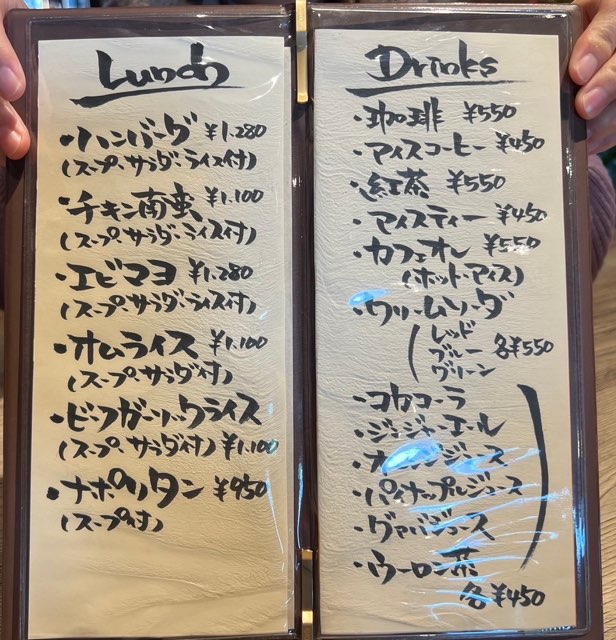 Lunch
・ハンバーグ ¥1.280
(スープ、サラダ・ライス付)
・チキン南蛮 ¥1.100
(スープ、サラダ・ライス付)
・エビマヨ ¥1.280
(スープ、サラダ・ライス付)
・オムライス ¥1.100
(スープ、サラダ付)
・ビーフガーリックライス
(スープ、サラダ付) ¥1.100
・ナポリタン ¥950
(スープ付)
Drinks
・珈琲 ¥550
・アイスコーヒー ¥450
・紅茶 ¥550
・アイスティー ¥450
・カフェオレ ¥550
(ホット・アイス)
・クリームソーダ
レッド
ブルー 各¥550
グリーン
・コカコーラ
・ジンジャーエール
・オレンジジュース
・パイナップルジュース
・グァバジュース
・ウーロン茶
各¥450